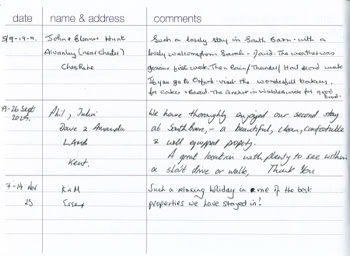 date name & address comments
5/9-19-9. John & Eleanor Hunt Such a lovely stay in South Barn - with a
Alvanley (near Chester) lovely welcome from Sarah - David. The weather was
Cheshire glorious first week. Then Rain/Thunder! Had second week
If you go to Orford visit the wonderful bakery
for cakes + Bread. The Anchor in Woodbridge for good
food.
19-26 Sept Phil, Julie We have thoroughly enjoyed our second stay
2024. Dave & Amanda at South Barn, - a beautiful, clean, comfortable
LAMB & well equipped property.
Kent. A great location with plenty to see within
a short drive or walk, Thank You
7-14 Nov K & M Such a relaxing holiday in one of the best
25 Essex properties we have stayed in!